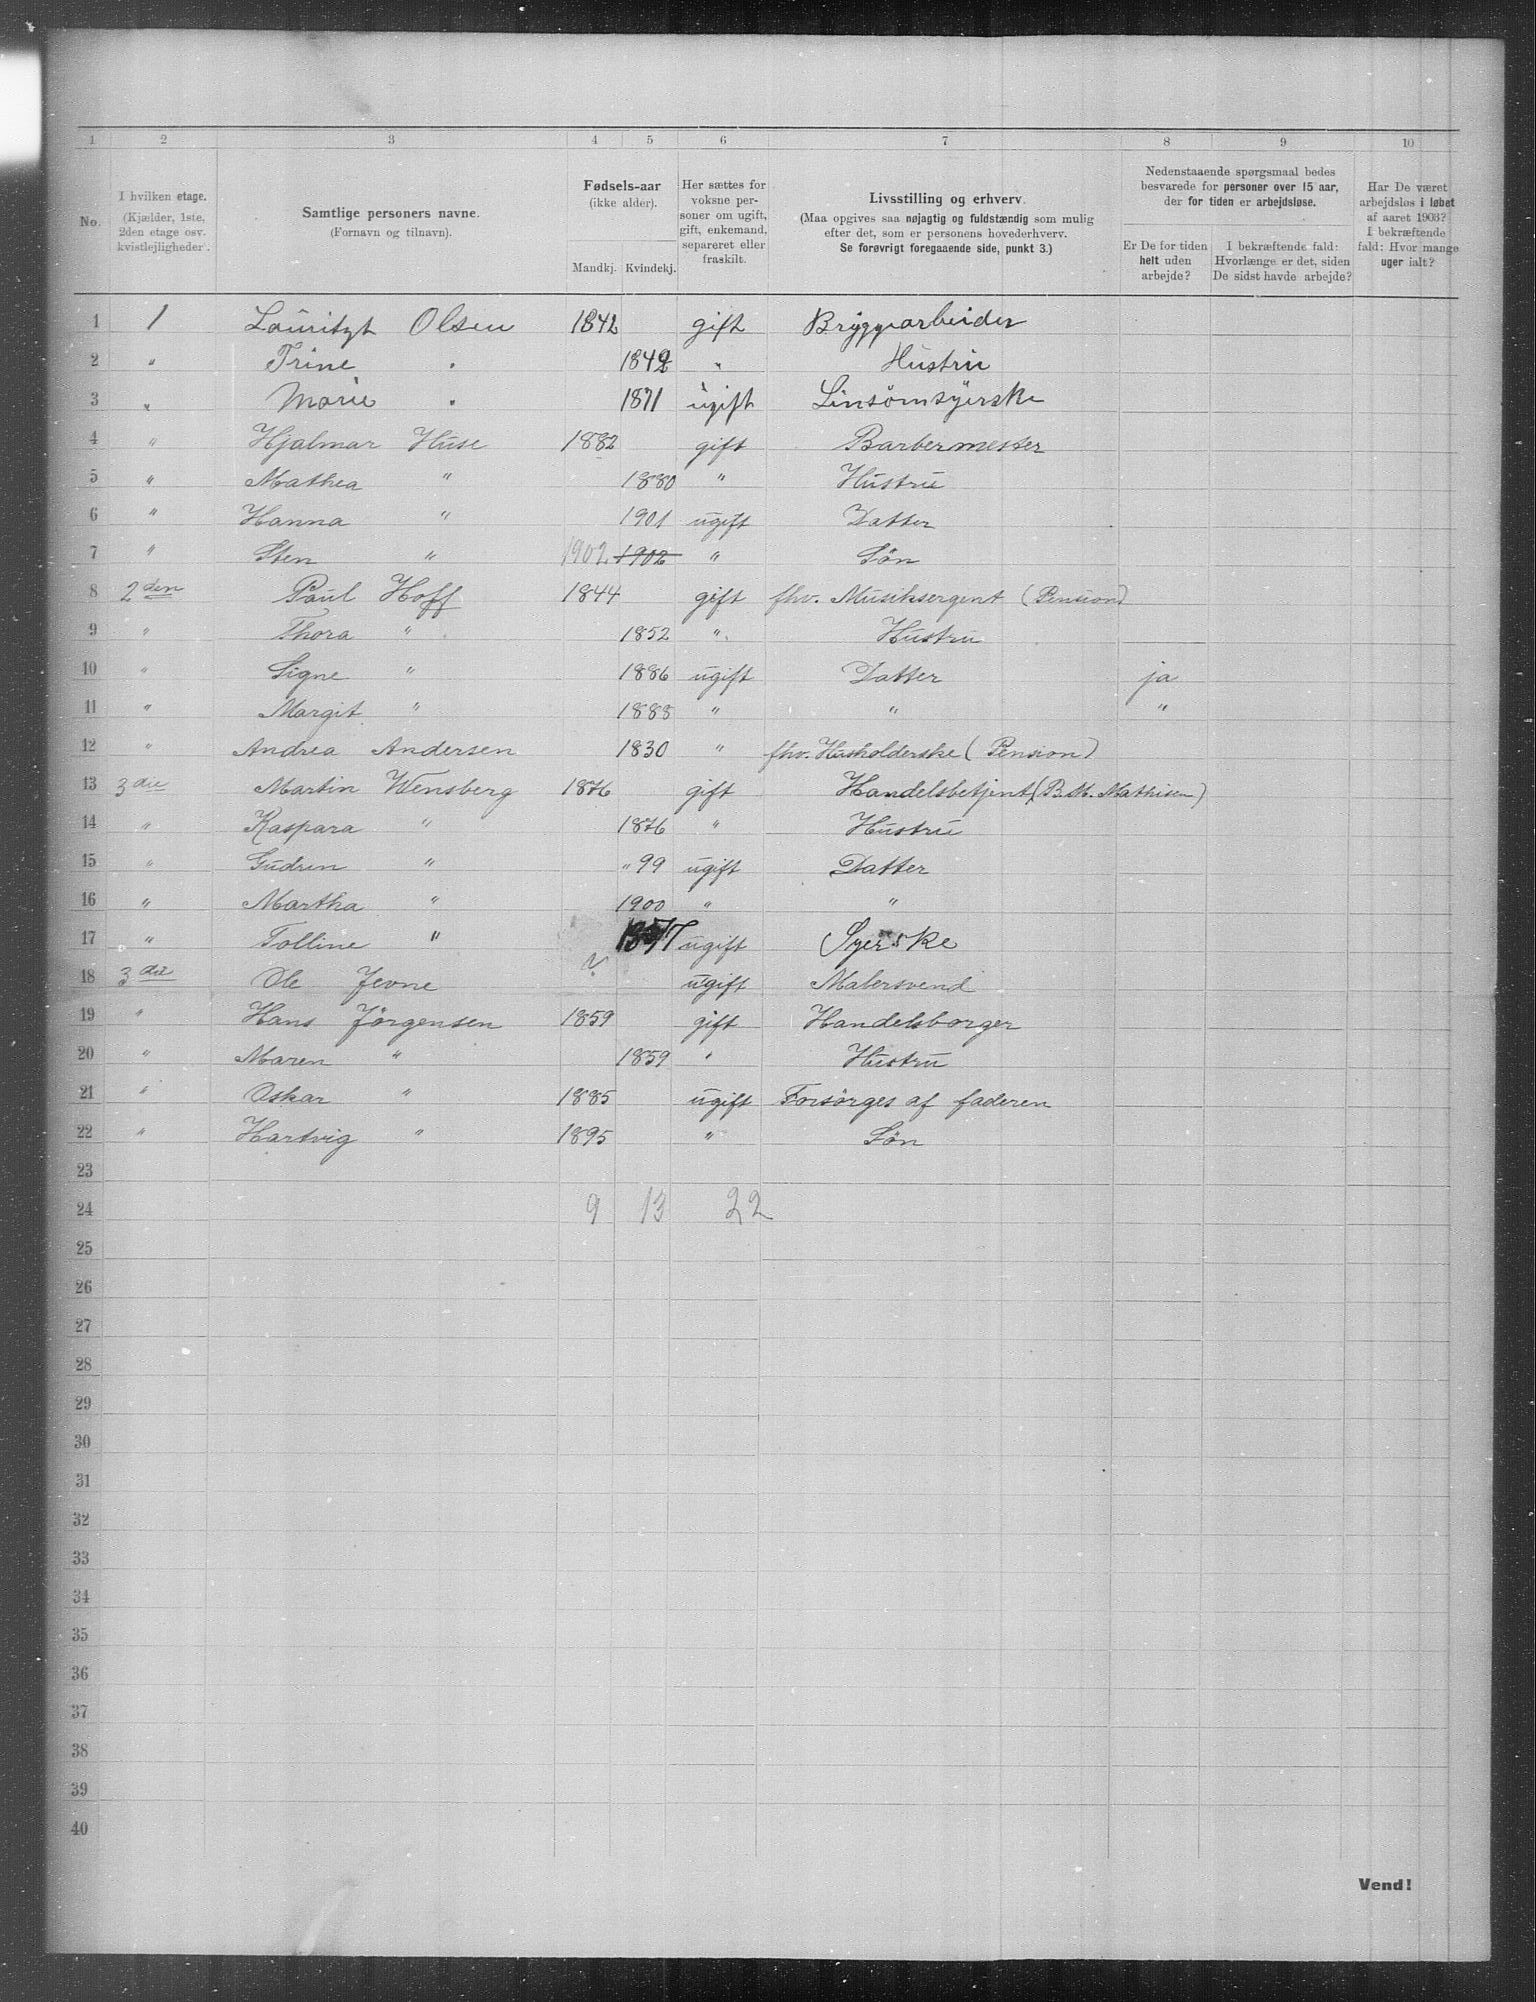 1 2 3 4 5 6 7 8 9 10
No.
I hvilken etage.
(Kjælder, 1ste,
2den etage osv.
kvistlejligheder.
Samtlige personers navne.
(Fornavn og tilnavn).
Fødsels-aar
(ikke alder).
Mandkj. Kvindekj.
Her sættes for
voksne per-
soner om ugift,
gift, enkemand,
separeret eller
fraskilt.
Livsstilling og erhverv.
(Maa opgives saa nøjagtig og fuldstændig som mulig
efter det, som er personens hovederhverv.
Se forøvrigt foregaaende side, punkt 3.)
Nedenstaaende spørgsmaal bedes
besvarede for personer over 15 aar,
der for tiden er arbejdsløse.
Er De for tiden
helt uden
arbejde?
I bekræftende fald:
Hvorlænge er det, siden
De sidst havde arbejde?
Har De været
arbejdsløs i løbet
af aaret 1903?
I bekræftende
fald: Hvor mange
uger ialt?
1 1 Lauritzt Olsen 1842 gift Bryggarbeider
2 " Trine " 1842 " Hustru
3 " Marie " 1871 ugift Linsömsyerske
4 " Hjalmar Huse 1882 gift Barbermester
5 " Mathea " 1880 " Hustru
6 " Hanna " 1901 ugift Datter
7 " Sten " 1902 1902 " Sön
8 2den Paul Hoff 1844 gift fhv. Musiksergent (Pension)
9 " Thora " 1852 " Hustru
10 " Signe " 1886 ugift Datter ja
11 " Margit " 1888 " " "
12 " Andrea Andersen 1830 " fhv. Husholderske (Pension)
13 3die Martin Wensberg 1876 gift Handelsbetjent (B. M. Mathisen)
14 " Kaspara " 1876 " Hustru
15 " Gudrun " " 99 ugift Datter
16 " Martha " 1900 " "
17 " Tolline " 1877 ugift Syerske
18 3die Ole Jevne ? ugift Malersvend
19 " Hans Jørgensen 1859 gift Handelsborger
20 " Maren " 1859 " Hustru
21 " Oskar " 1885 ugift Forsørges af faderen
22 " Hartvig " 1895 " Sön
23
24 9 13 22
25
26
27
28
29
30
31
32
33
34
35
36
37
38
39
40
Vend!